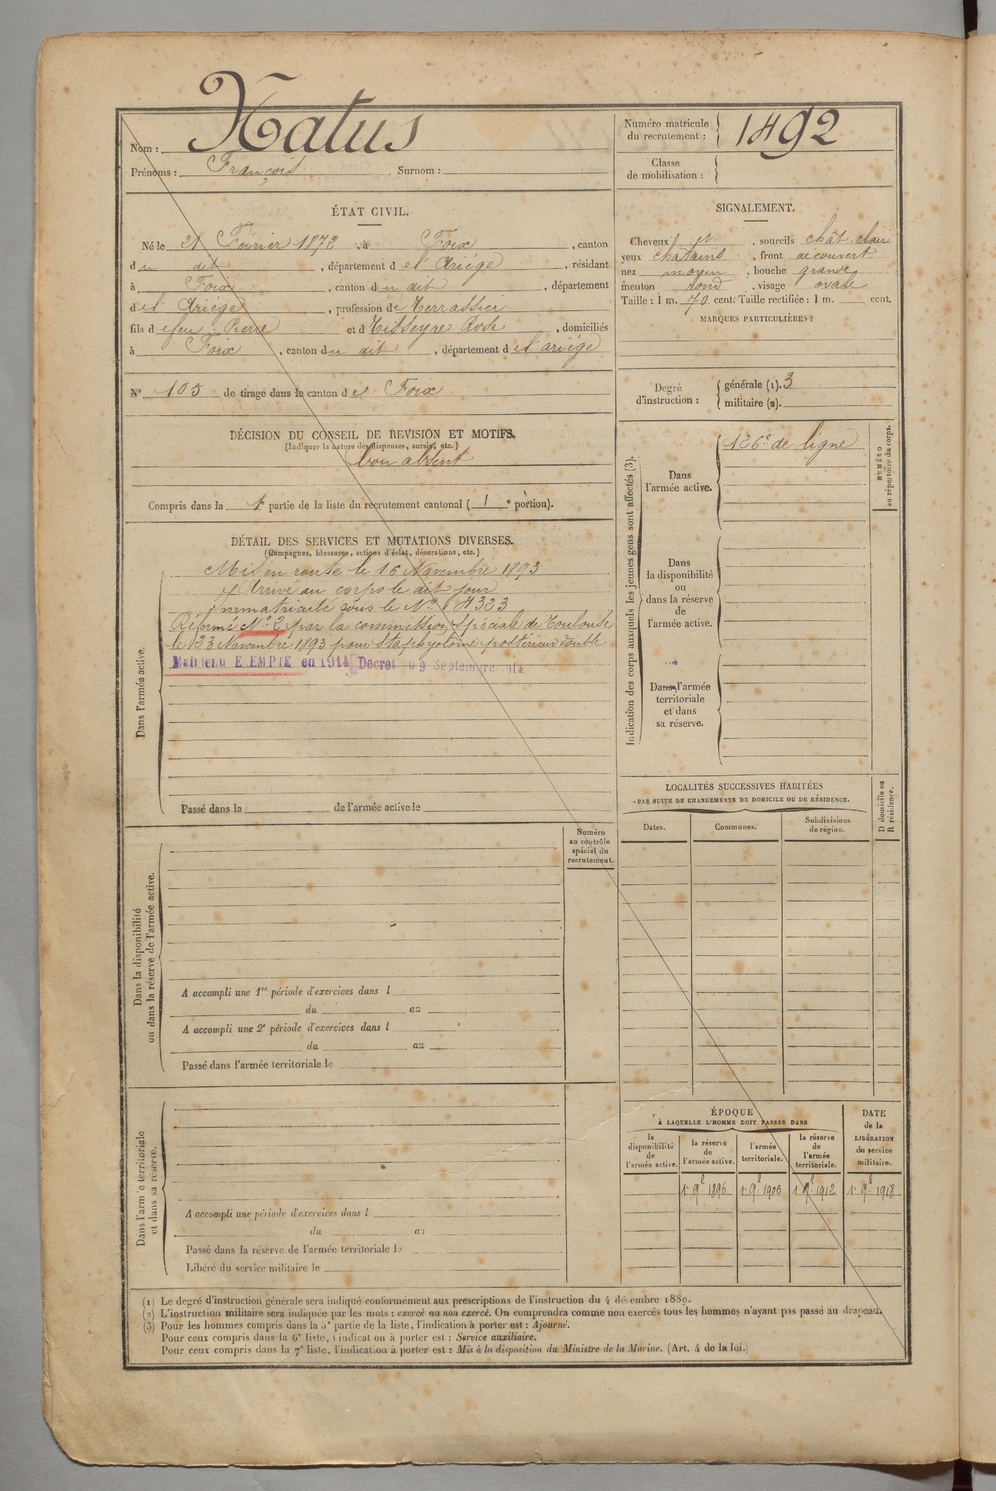 Nom : Xatus
Prénoms : François Surnom :
Numéro matricule du recrutement : 1492
Classe de mobilisation :
ÉTAT CIVIL.
Né le 21 Février 1872, à Foix, canton
du dit, département de l'Ariège, résidant
à Foix, canton du dit, département
de l'Ariège, profession de Terrassier
fils de feu Pierre et de Tisseyre Rose, domiciliés
à Foix, canton du dit, département de l'ariège
N° 105 de tirage dans le canton de Foix
DÉCISION DU CONSEIL DE REVISION ET MOTIFS.
(Indiquer la nature des dispenses, sursis, etc.)
bon absent
Compris dans la 1e partie de la liste du recrutement cantonal (1e portion).
DÉTAIL DES SERVICES ET MUTATIONS DIVERSES.
(Campagnes, blessures, actions d'éclat, décorations, etc.)
Dans l'armée active.
Mis en route le 16 Novembre 1893
Arrivé au corps le dit jour
Immatriculé sous le N° 4323
Réformé N° 2 par la commission Spéciale de Toulouse
le 23 Novembre 1893 pour Staphylome postérieur double
Maintenu EXEMPTE en 1914 Décret du 9 Septembre 1914
Passé dans la de l'armée active le
Numéro au contrôle spécial du recrutement.
Dans la disponibilité ou dans la réserve de l'armée active.
A accompli une 1re période d'exercices dans l
du au
A accompli une 2e période d'exercices dans l
du au
Passé dans l'armée territoriale le
Dans l'armée territoriale et dans sa réserve.
A accompli une période d'exercices dans l
du au
Passé dans la réserve de l'armée territoriale le
Libéré du service militaire le
SIGNALEMENT.
Cheveux et, sourcils chât. clair
yeux châtains, front découvert
nez moyen, bouche grande
menton rond, visage ovale
Taille : 1 m. 70 cent. Taille rectifiée : 1 m. cent.
MARQUES PARTICULIÈRES :
Degré d'instruction : générale (1). 3
militaire (2).
Indication des corps auxquels les jeunes gens sont affectés (3).
Dans l'armée active. 126e de ligne
NUMÉRO au répertoire du corps.
Dans la disponibilité ou dans la réserve de l'armée active.
Dans l'armée territoriale et dans sa réserve.
LOCALITÉS SUCCESSIVES HABITÉES
PAR SUITE DE CHANGEMENTS DE DOMICILE OU DE RÉSIDENCE.
D domicile ou R résidence.
Dates. Communes. Subdivisions de région.
ÉPOQUE
À LAQUELLE L'HOMME DOIT PASSER DANS
DATE de la LIBÉRATION du service militaire.
la disponibilité de l'armée active. la réserve de l'armée active. l'armée territoriale. la réserve de l'armée territoriale.
1r 9e 1896 1r 9e 1906 1r 9e 1912 1r 9e 1918
(1) Le degré d'instruction générale sera indiqué conformément aux prescriptions de l'instruction du 4 décembre 1889.
(2) L'instruction militaire sera indiquée par les mots : exercé ou non exercé. On comprendra comme non exercés tous les hommes n'ayant pas passé au drapeau.
(3) Pour les hommes compris dans la 5e partie de la liste, l'indication à porter est : Ajourné.
Pour ceux compris dans la 6e liste, l'indication à porter est : Service auxiliaire.
Pour ceux compris dans la 7e liste, l'indication à porter est : Mis à la disposition du Ministre de la Marine. (Art. 4 de la loi.)